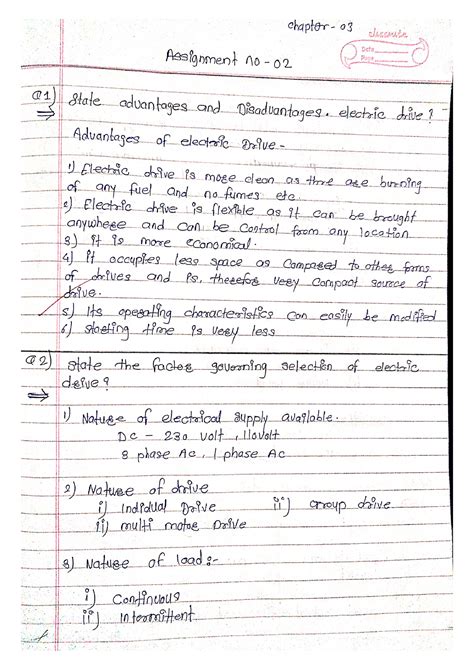 chapter - 03
classmate
Date
Page
Assignment no - 02
Q1) State advantages and Disadvantages. electric drive?
⇒ Advantages of electric Drive -
1) Electric drive is more clean as thre are burning
of any fuel and no fumes etc.
2) Electric drive is flexible as it can be brought
anywhere and can be control from any location
3) it is more economical.
4) it occupies less space as compared to other forms
of drives and is, therefore very compact source of
drive.
5) Its operating characteristics can easily be modified
6) starting time is very less
Q2) state the factor governing selection of electric
⇒ drive?
1) Nature of electrical supply available.
DC - 230 volt, 110volt
3 phase AC, 1 phase AC
2) Nature of drive
i) Indidual Drive ii) Group drive.
ii) multi motor Drive
3) Nature of load:-
i) Continuous
ii) intermittent.